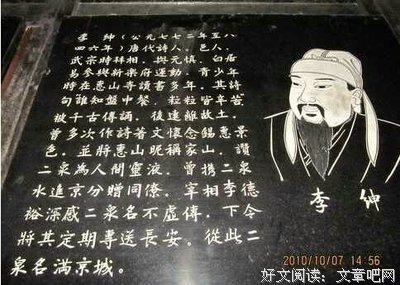 李 紳(公元七七二年至八
四六年)唐代詩人、邑人,
武宗時拜相。與元慎、白居
易參與新樂府運動。青少年
時在惠山寺讀書多年。其詩
句誰知盤中餐,粒粒皆辛苦
被千古傳誦。後遠離故土,
曾多次作詩著文懷念錫惠景
色,並將惠山昵稱家山。讚
二泉為人間靈液。曾携二泉
水進京分贈同僚。宰相李德
裕深感二泉名不虛傳,下令
將其定期專送長安。從此二
泉名滿京城。
李 紳
2010/10/07 14:56
好文阅读:文章吧网